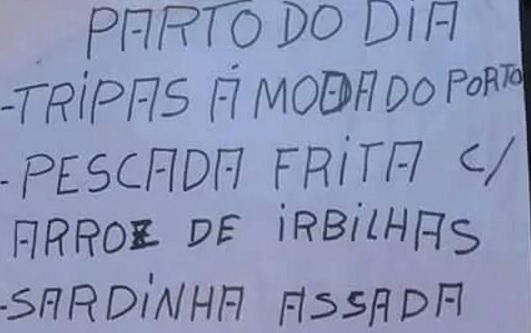 PARTO DO DIA
-TRIPAS Á MODA DO PORTO
- PESCADA FRITA C/
ARROZ DE IRBILHAS
-SARDINHA ASSADA